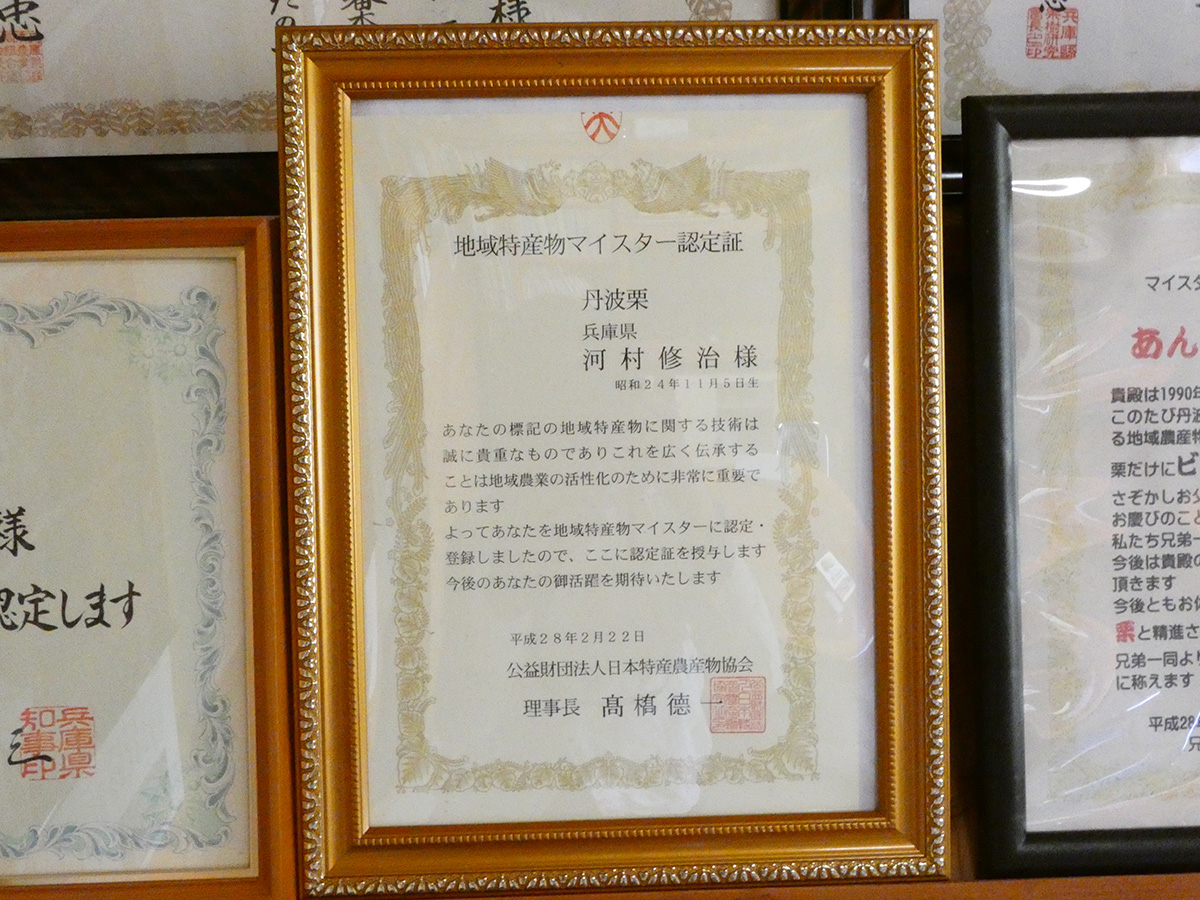 忠
たの
様
地域特産物マイスター認定証
丹波栗
兵庫県
河村修治様
昭和24年11月5日生
あなたの標記の地域特産物に関する技術は
誠に貴重なものでありこれを広く伝承する
ことは地域農業の活性化のために非常に重要で
あります
よってあなたを地域特産物マイスターに認定・
登録しましたので、ここに認定証を授与します
今後のあなたの御活躍を期待いたします
平成28年2月22日
公益財団法人日本特産農産物協会
理事長 髙橋德一
様
認定します
三
兵庫県
知事印
マイスタ
あん
貴殿は1990年
このたび丹波
る地域農産物
栗だけにビ
さぞかしお父
お慶びのこと
私たち兄弟一
今後は貴殿の
頂きます
今後ともお体
栗と精進さ
兄弟一同より
に称えます
平成28
兄